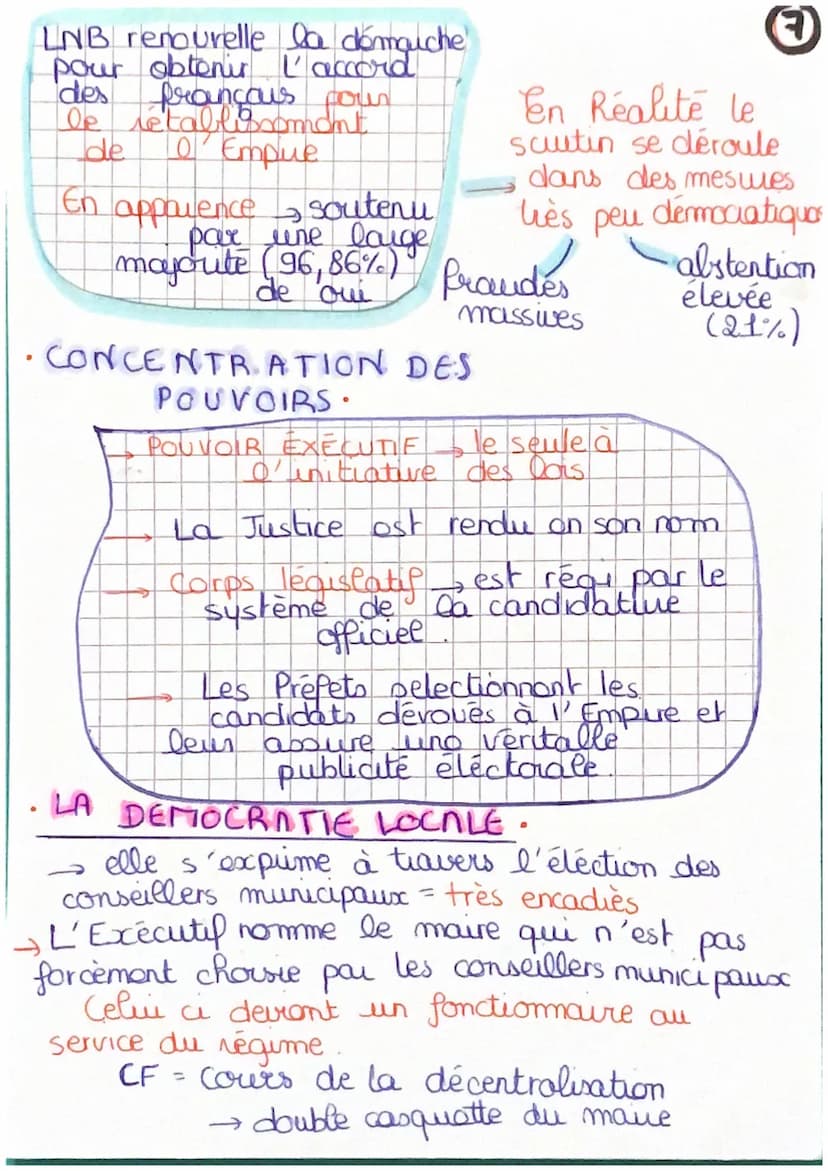 7
LNB renouvelle la démarche
pour obtenir l'accord
des français pour
le rétablissement
de l'Empire
En apparence → soutenu
par une large
majorité (96,86%)
de oui
En Réalité le
scrutin se déroule
dans des mesures
très peu démocratiques
fraudes
massives
abstention
élevée
(21%)
• CONCENTRATION DES
POUVOIRS •
→ POUVOIR ÉXÉCUTIF → le seule à
l'initiative des lois
→ La Justice est rendu en son nom
→ Corps législatif → est régi par le
système de la candidature
officiel.
→ Les Préfets selectionnent les
candidats dévoués à l'Empire et
leur assure une véritable
publicité éléctorale.
• LA DEMOCRATIE LOCALE •
→ elle s'exprime à travers l'éléction des
conseillers municipaux = très encadrés
→ L'Exécutif nomme le maire qui n'est pas
forcément choisie par les conseillers municipaux
Celui ci devient un fonctionnaire au
service du régime.
CF = cours de la décentralisation
→ double casquette du maire